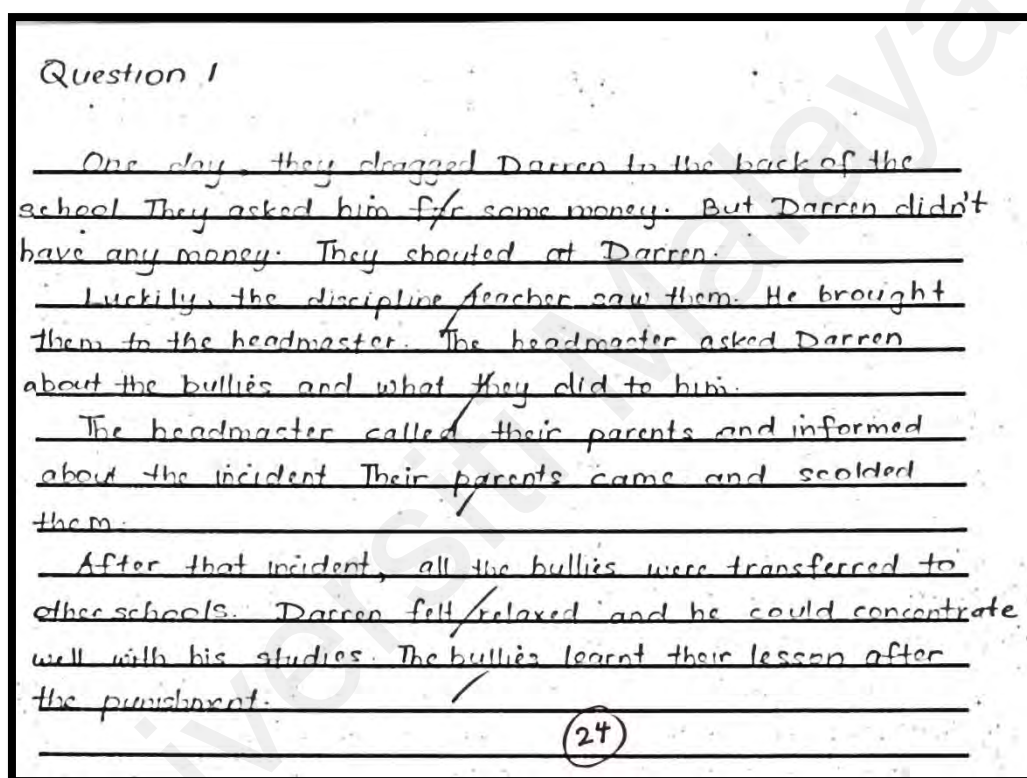 Question 1
One day, they dragged Darren to the back of the
school They asked him for some money. But Darren didn't
have any money. They shouted at Darren.
Luckily, the discipline teacher saw them. He brought
them to the headmaster. The headmaster asked Darren
about the bullies and what they did to him.
The headmaster called their parents and informed
about the incident Their parents came and scolded
them.
After that incident, all the bullies were transferred to
other schools. Darren felt relaxed and he could concentrate
well with his studies. The bullies learnt their lesson after
the punishment.
24
versiti Malaya